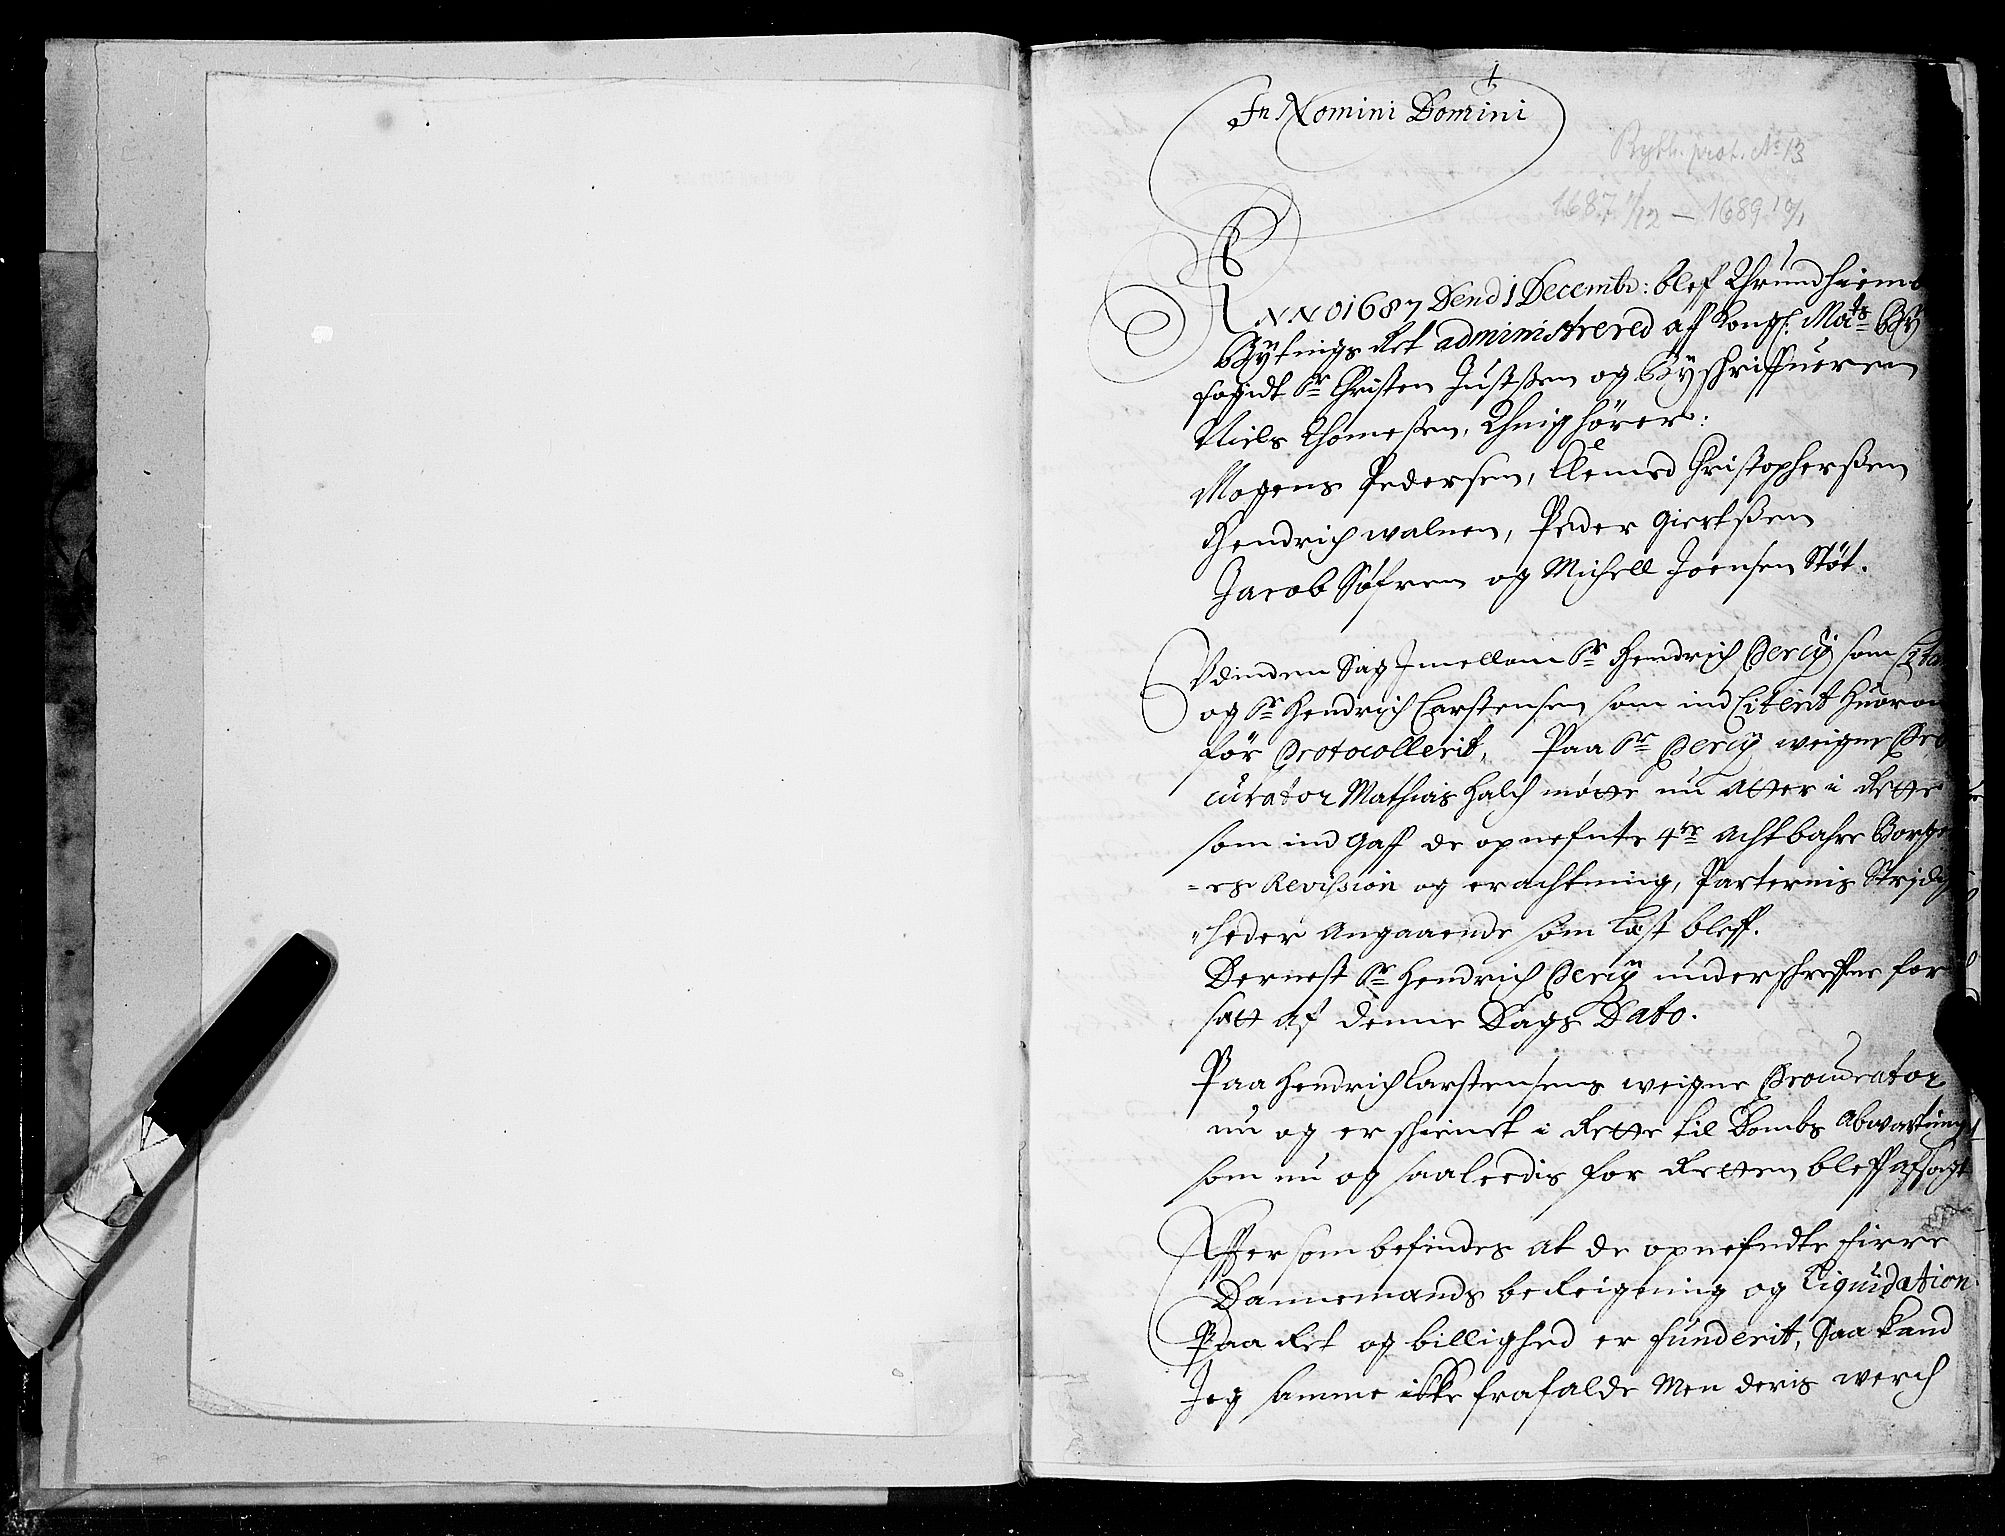 In Nomini Domini
Bytb. prot. No 13
1687 1/12 – 1689 19/1
ANNO 1687 Dend 1 Decembr: blef Thrundhiembs
Bÿtings Ret administrered aff Kongl: Mats Bÿ
fogidt Sr Christen Justßen og Bÿschriffueren
Niels Thomeßen, Thinghörer:
Mogens Pedersen, Clemed Christopherßen
Hendrich walnen, Peder Giertßen
Jacob Söfren og Michell Joensen Stöt.
Vdinden Sag Jmellom Sr Hendrich Percÿ som
og Sr Hendrich Carstensen som ind Citerit huorom
för Protocollerit, Paa Sr Percÿ weigne Pro
curator Mathias Halch mötte nu atter i Rette
som ind Gaff de opnefnte 4re achtbahre Borge
=rs Revission og erachtning, Parternis Stridig
"heder angaaende som läst bleff.
Dernest Sr Hendrich Percÿ underschreffne for
sætt af denne Dags Dato.
Paa Hendrich Carstensens weigne Procurator
nu og erschienet i Rette til Dombs abwartning
som nu og saaleedis for Retten bleff afsagt
Effter som befindes at de opnefndte firre
Dannemands bereigning og Liquidation
Paa Ret og billighed er funderit, Saa kand
Jeg samme ikke frafalde Men deris werch